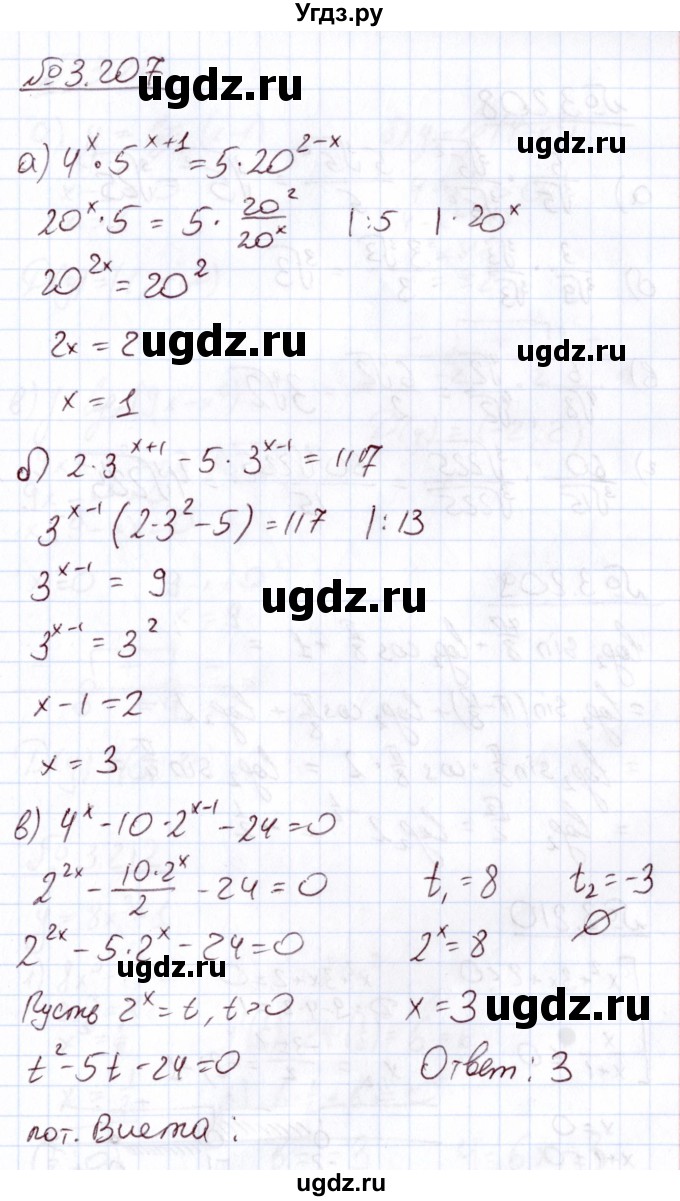 Угдз.ру
№3.207
а) 4^x · 5^(x+1) = 5 · 20^(2-x)
20^x · 5 = 5 · 20^2/20^x |:5 |· 20^x
20^(2x) = 20^2
2x = 2
x = 1
б) 2·3^(x+1) - 5·3^(x-1) = 117
3^(x-1) (2·3^2 - 5) = 117 |:13
3^(x-1) = 9
3^(x-1) = 3^2
x - 1 = 2
x = 3
в) 4^x - 10·2^(x-1) - 24 = 0
2^(2x) - 10·2^x/2 - 24 = 0
2^(2x) - 5·2^x - 24 = 0
Пусть 2^x = t, t > 0
t^2 - 5t - 24 = 0
по т. Виета:
t₁ = 8 t₂ = -3
2^x = 8 ∅
x = 3
Ответ: 3
ugdz.ru
ugdz.ru
ugdz.ru
ugdz.ru
ugdz.ru
ugdz.ru
ugdz.ru
ugdz.ru
ugdz.ru